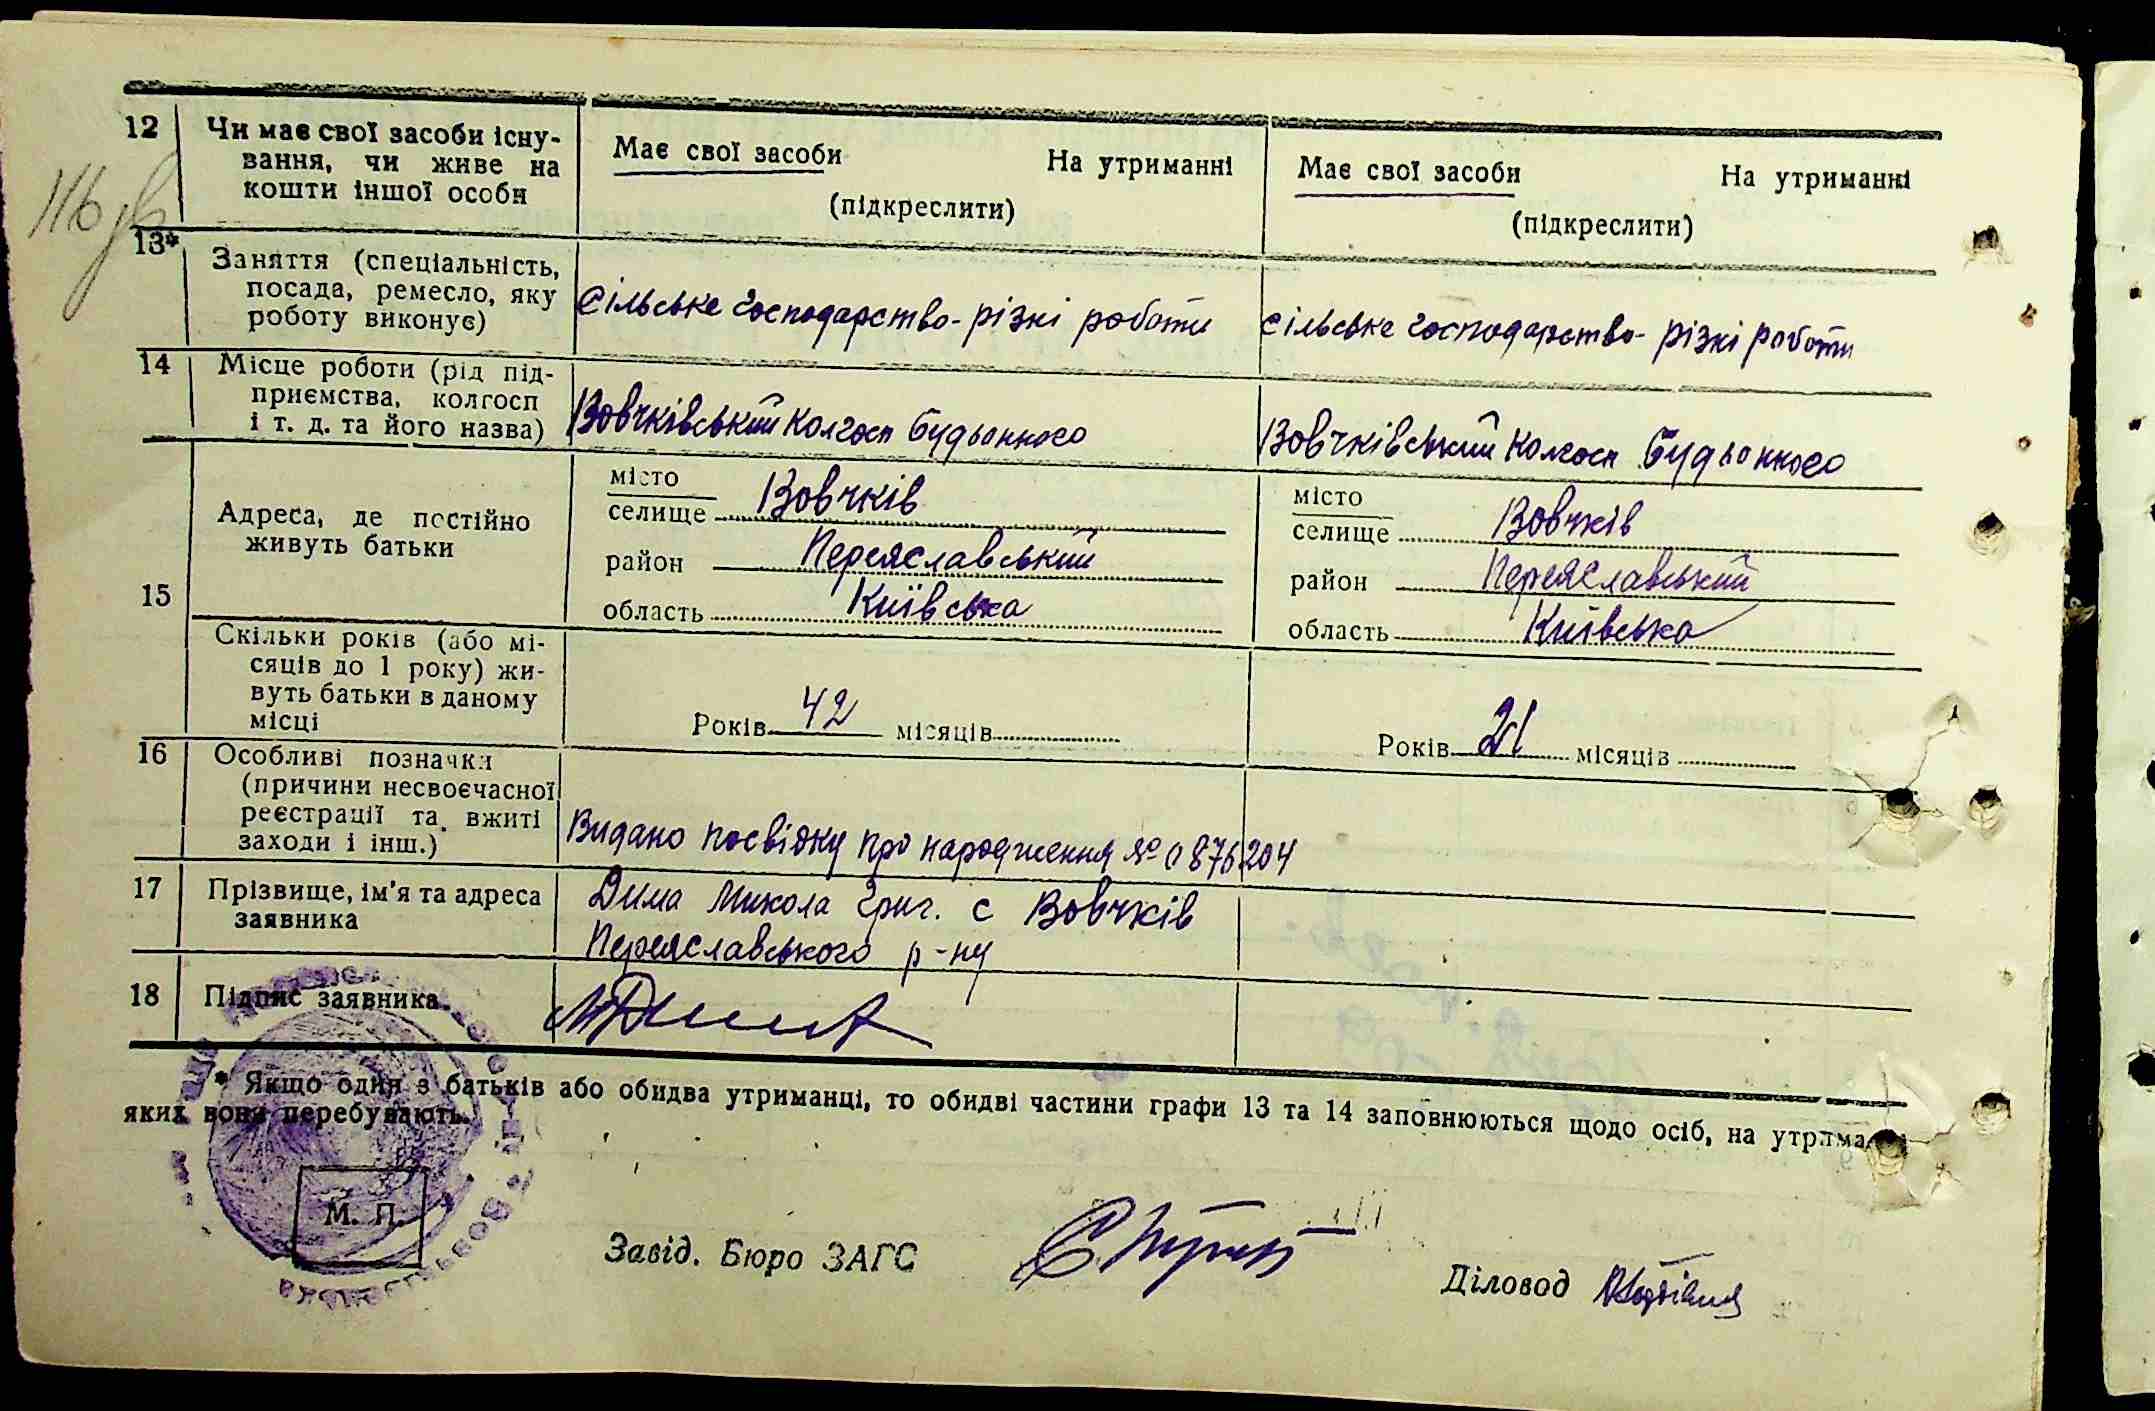 12 Чи має свої засоби існу-
вання, чи живе на
кошти іншої особи
Має свої засоби На утриманні
(підкреслити)
Має свої засоби На утриманні
(підкреслити)
13* Заняття (спеціальність,
посада, ремесло, яку
роботу виконує)
Сільське господарство-різні роботи
Сільське господарство-різні роботи
14 Місце роботи (рід під-
приємства, колгосп
і т. д. та його назва)
Вовчківський колгосп Будьонного
Вовчківський колгосп Будьонного
15
Адреса, де постійно
живуть батьки
місто
селище Вовчків
район Переяславський
область Київська
місто
селище Вовчків
район Переяславський
область Київська
Скільки років (або мі-
сяців до 1 року) жи-
вуть батьки в даному
місці
Років 42 місяців
Років 21 місяців
16 Особливі позначки
(причини несвоєчасної
реєстрації та вжиті
заходи і інш.)
Видано посвідку про народження № 0876204
17 Прізвище, ім'я та адреса
заявника
Дима Микола Григ. с Вовчків
Переяславського р-ну
18 Підпис заявника
* Якщо один з батьків або обидва утриманці, то обидві частини графи 13 та 14 заповнюються щодо осіб, на утрима
яких вони перебувають.
М. П.
Завід. Бюро ЗАГС
Діловод